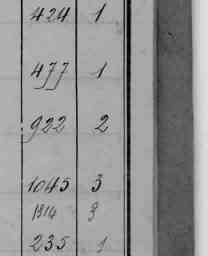 424 1
477 1
922 2
1045 3
1314 3
235 1